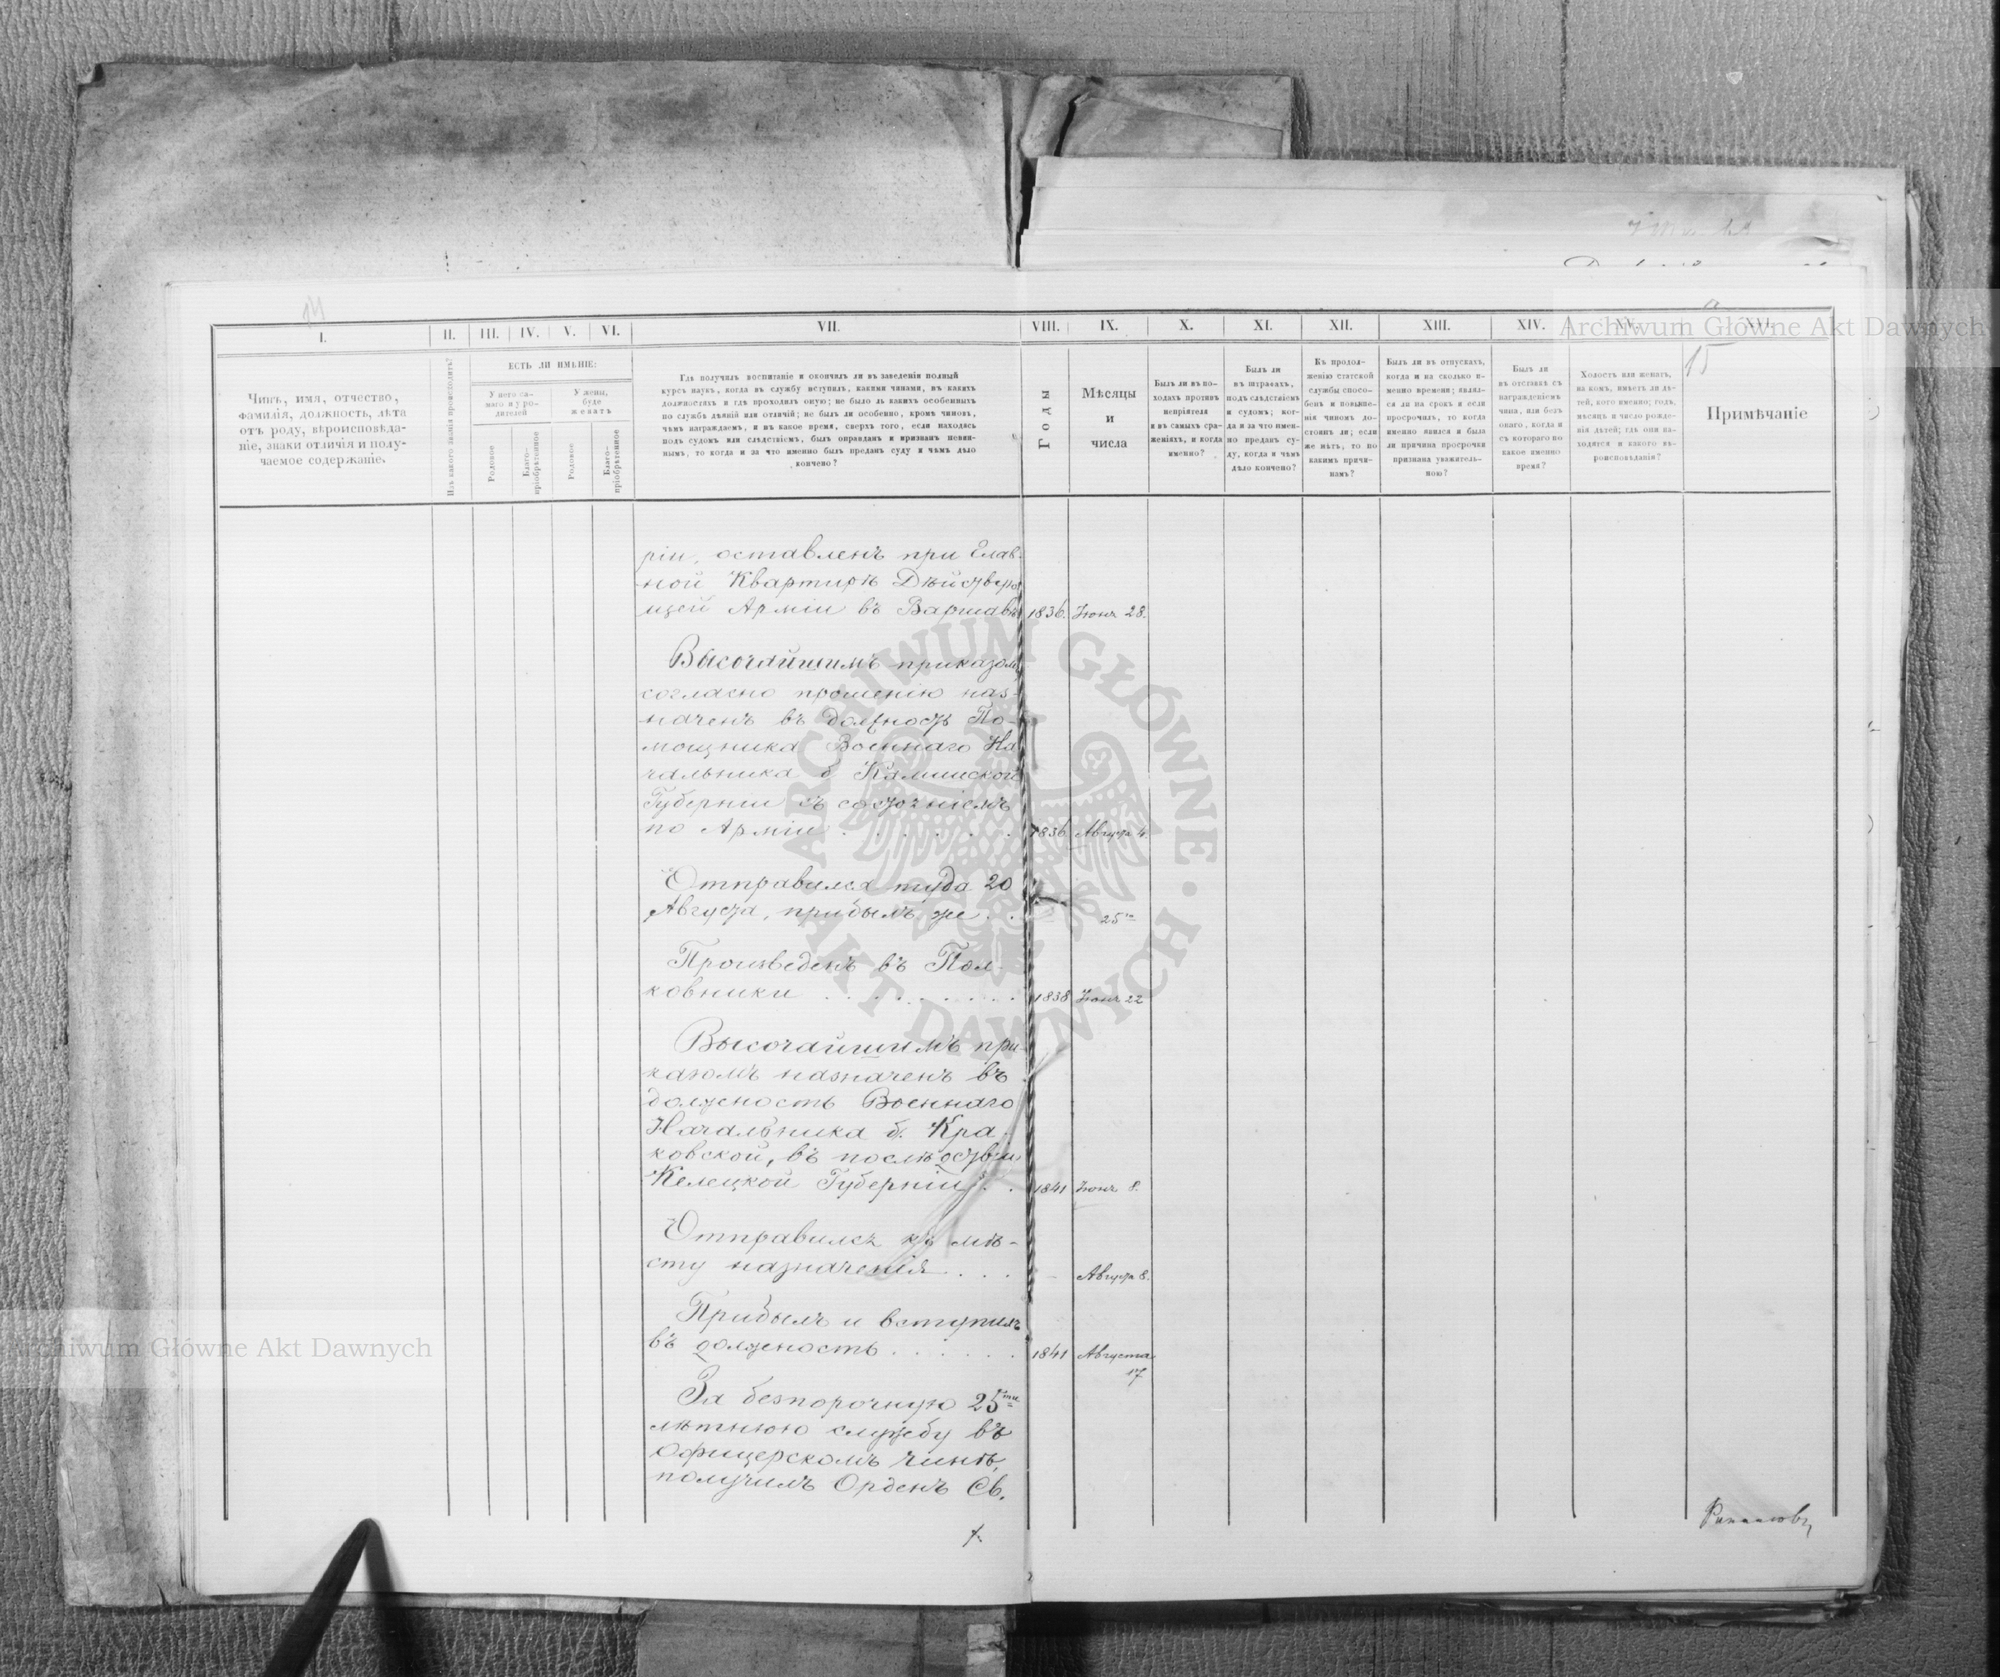 14
15
I.
II.
III.
IV.
V.
VI.
VII.
VIII.
IX.
X.
XI.
XII.
XIII.
XIV.
XV.
XVI.
Чинъ, имя, отчество,
фамилія, должность, лѣта
отъ роду, вѣроисповѣда-
ніе, знаки отличія и полу-
чаемое содержаніе.
Изъ какого званія происходитъ?
ЕСТЬ ЛИ ИМѢНІЕ:
У него са-
маго и у ро-
дителей
У жены,
буде
женатъ
Родовое
Благо-
пріобрѣтенное
Родовое
Благо-
пріобрѣтенное
Гдѣ получилъ воспитаніе и окончилъ ли въ заведеніи полный
курсъ наукъ, когда въ службу вступилъ, какими чинами, въ какихъ
должностяхъ и гдѣ проходилъ оную; не было ль какихъ особенныхъ
по службѣ дѣяній или отличій; не былъ ли особенно, кромѣ чиновъ,
чѣмъ награждаемъ, и въ какое время, сверхъ того, если находясь
подъ судомъ или слѣдствіемъ, былъ оправданъ и признанъ невин-
нымъ, то когда и за что именно былъ преданъ суду и чѣмъ дѣло
кончено?
Годы
Мѣсяцы
и
числа
Былъ ли въ по-
ходахъ противъ
непріятеля
и въ самыхъ сра-
женіяхъ, и когда
именно?
Былъ ли
въ штрафахъ,
подъ слѣдствіемъ
и судомъ; ког-
да и за что имен-
но преданъ су-
ду, когда и чѣмъ
дѣло кончено?
Къ продол-
женію статской
службы спосо-
бенъ и повыше-
нія чиномъ до-
стоинъ ли; если
же нѣтъ, то по
какимъ причи-
намъ?
Былъ ли въ отпускахъ,
когда и на сколько и-
менно времени; являл-
ся ли на срокъ и если
просрочилъ, то когда
именно явился и была
ли причина просрочки
признана уважитель-
ною?
Былъ ли
въ отставкѣ съ
награжденіемъ
чина, или безъ
онаго, когда и
съ котораго по
какое именно
время?
Холостъ или женатъ,
на комъ, имѣетъ ли дѣ-
тей, кого именно; годъ,
мѣсяцъ и число рожде-
нія дѣтей; гдѣ они на-
ходятся и какого вѣ-
роисповѣданія?
Примѣчаніе
ріи, оставленъ при Глав-
ной Квартирѣ Дѣйствую
щей Арміи въ Варшавѣ 1836. Іюня 28.
Высочайшимъ приказомъ
согласно прошенію наз-
наченъ въ должность По-
мощника Военнаго На
чальника б. Калишской
Губерніи съ состояніемъ
по Арміи . . . . . . . 1836 Августа 4
Отправился туда 20
Августа, прибылъ же . . 25го
Произведенъ въ Пол-
ковники . . . . . . . . 1838 Іюня 22
Высочайшимъ при
казомъ назначенъ въ
должность Военнаго
Начальника б. Кра-
ковской, въ послѣдствіи
Келецкой Губерніи . . 1841 Іюня 8.
Отправился къ мѣ-
сту назначенія . . . Августа 8.
Прибылъ и вступилъ
въ должность . . . . . . 1841 Августа
17
За безпорочную 25ти
лѣтнюю службу въ
офицерскомъ чинѣ,
получилъ Орденъ Св.
Archiwum Główne Akt Dawnych
ARCHIWUM GŁÓWNE AKT DAWNYCH
Archiwum Główne Akt Dawnych